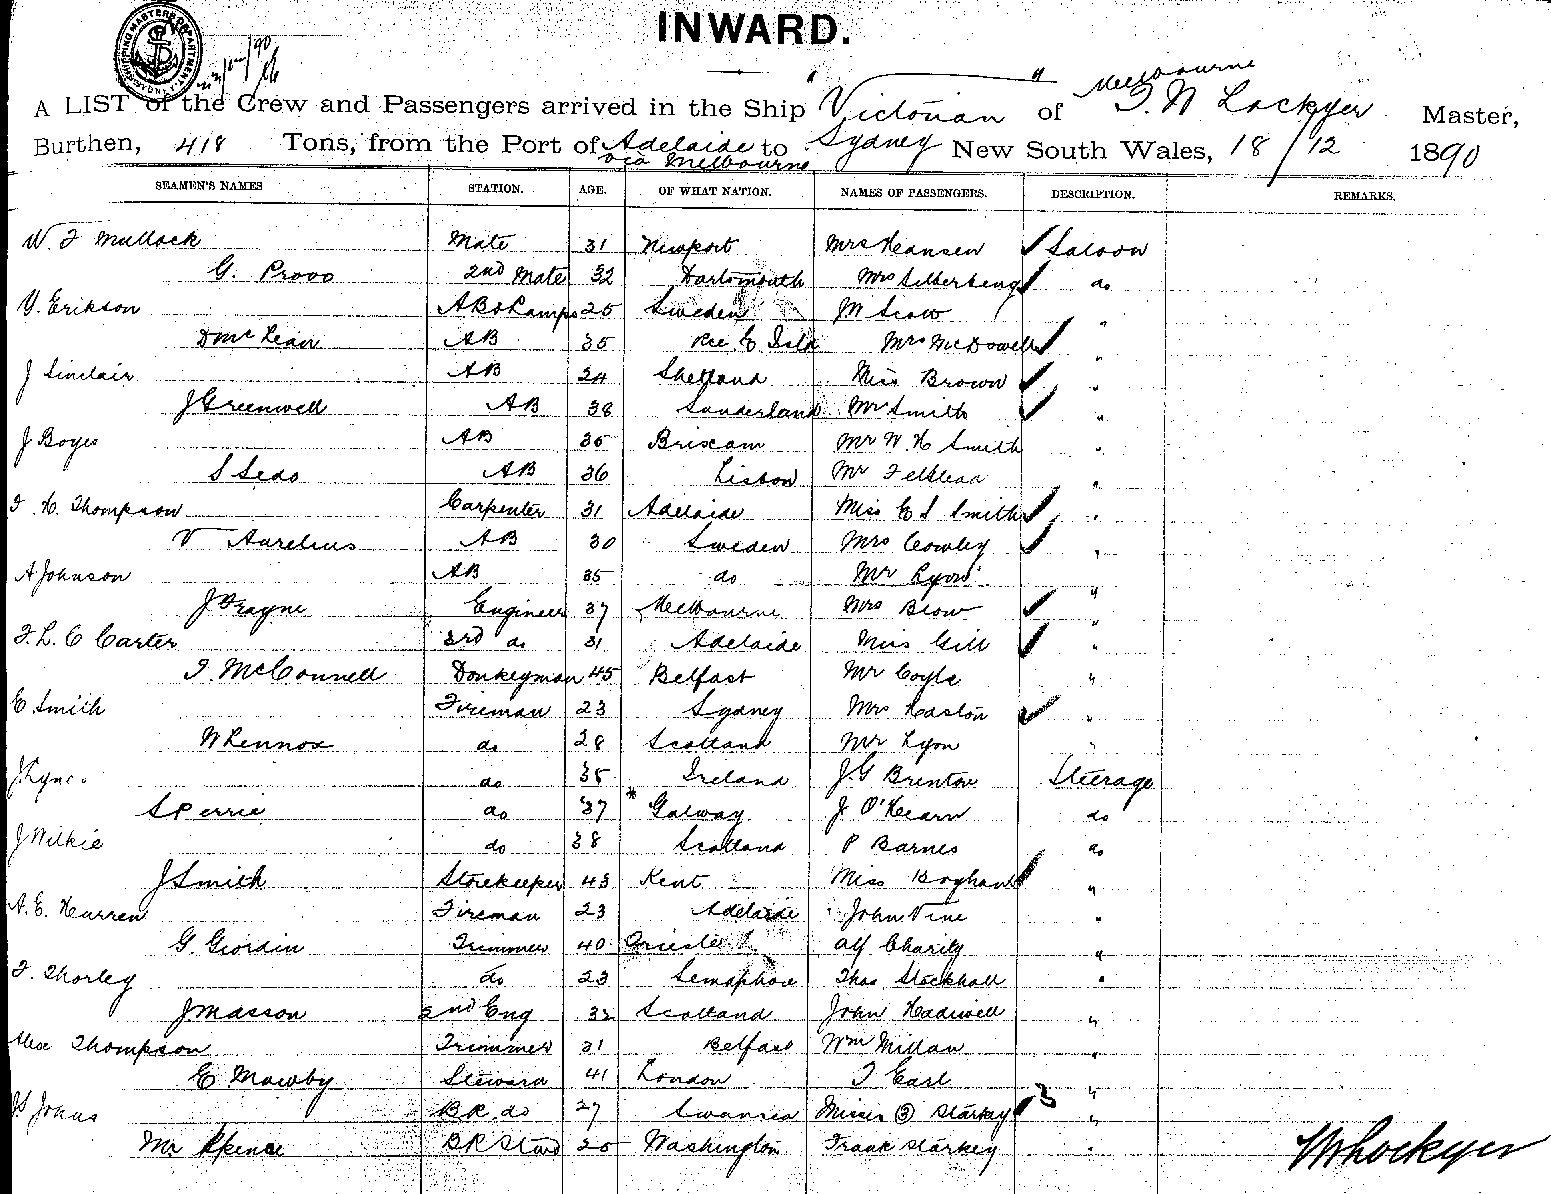 INWARD.
Melbourne
A LIST of the Crew and Passengers arrived in the Ship "Victorian" of T. N Lockyer Master,
Burthen, 418 Tons, from the Port of Adelaide to Sydney New South Wales, 18/12 1890
via Melbourne
SEAMEN'S NAMES STATION. AGE. OF WHAT NATION. NAMES OF PASSENGERS. DESCRIPTION. REMARKS.
W. F Mullock Mate 31 Newport Mrs Hansen Saloon
G. Provo 2nd Mate 32 Dartmouth Mrs Silberberg do
Y. Erikson AB & Lamps 25 Sweden M Scow "
D McLean AB 35 Pce E Isld Mrs McDowell "
J Sinclair AB 24 Shetland Miss Brown "
J Greenwell AB 38 Sunderland Mr Smith "
J Boyes AB 35 Brixam Mr W. H Smith "
S Sedo AB 36 Lisbon Mr "
F. H. Thompson Carpenter 31 Adelaide Miss E S Smith "
V Aurelius AB 30 Sweden Mrs Cowley "
A Johnson AB 35 do Mr "
J Frayne Engineer 37 Melbourne Mrs Brow "
F. L. C Carter 3rd do 31 Adelaide Miss Gill "
J. McConnell Donkeyman 45 Belfast Mr Coyle "
E Smith Fireman 23 Sydney Mrs Haston "
W Lennox do 28 Scotland Mr Lyon "
J. do 35 Ireland J. G Brenton Steerage
S Perrie do 37 * Galway J O'Hearn do
J Wilkie do 38 Scotland P Barnes do
J Smith Storekeeper 43 Kent Miss "
A. E. Harren Fireman 23 Adelaide John Vine "
G. Giordin Trimmer 40 Alf Charity "
F. Thorley do 23 Semaphore Thos Stockhall "
J Masson 2nd Eng 32 Scotland John Hadiwell "
Alex Thompson Trimmer 31 Belfast Wm Millan "
E Mawby Steward 41 London T Earl "
Js Johns BR do 27 Swansea Misses (3) Starkey 3 "
Mr Spence BR Stwd 20 Washington Frank Starkey "
Lockyer